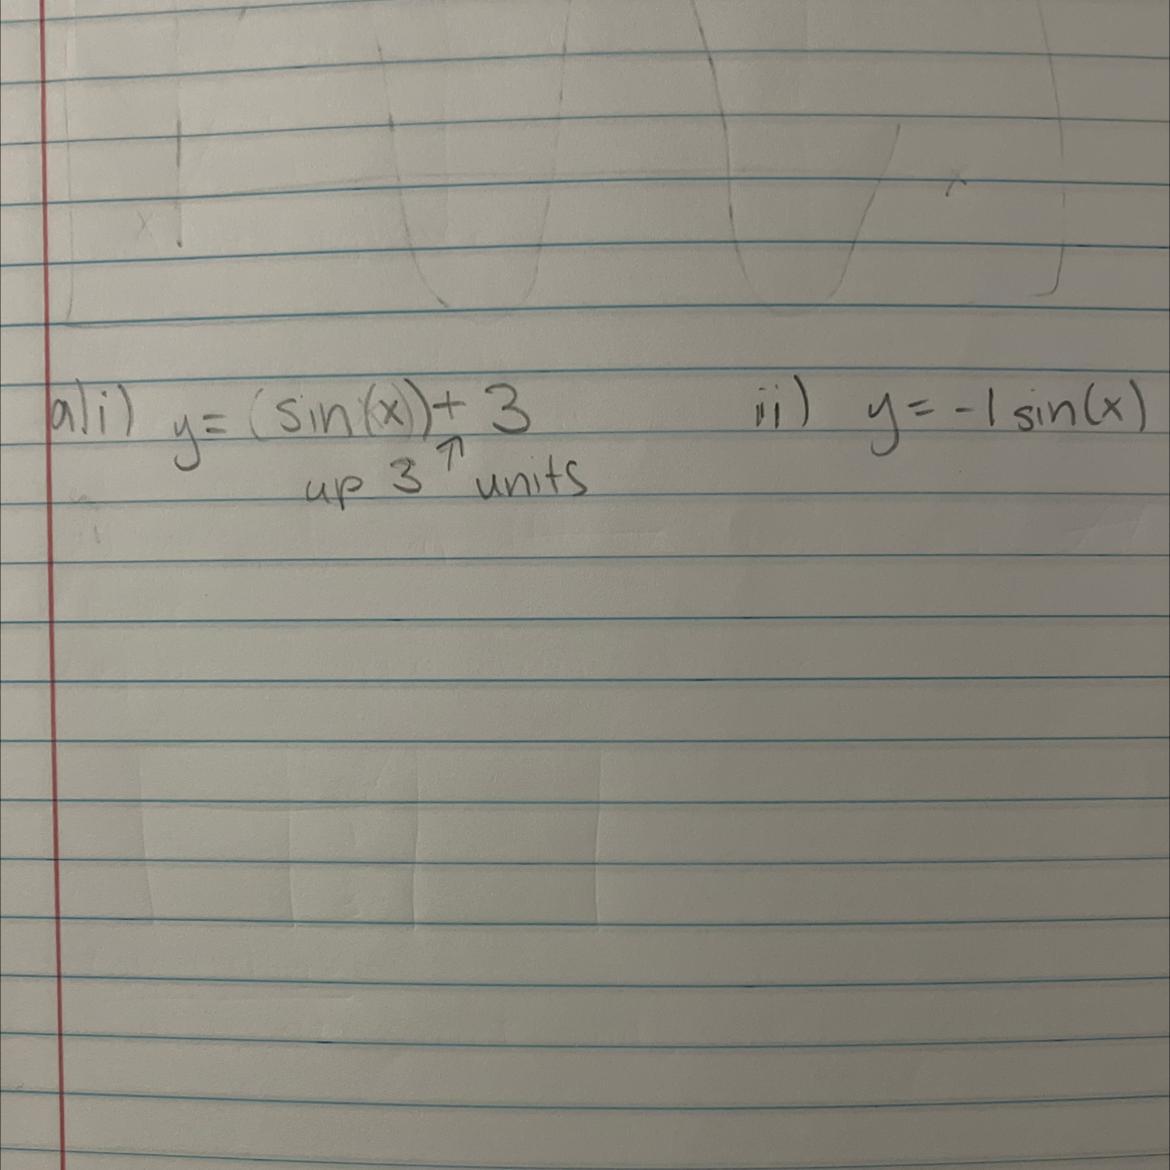 a)i) y= (sin(x))+ 3 ii) y= -1 sin(x)
up 3 ↑ units